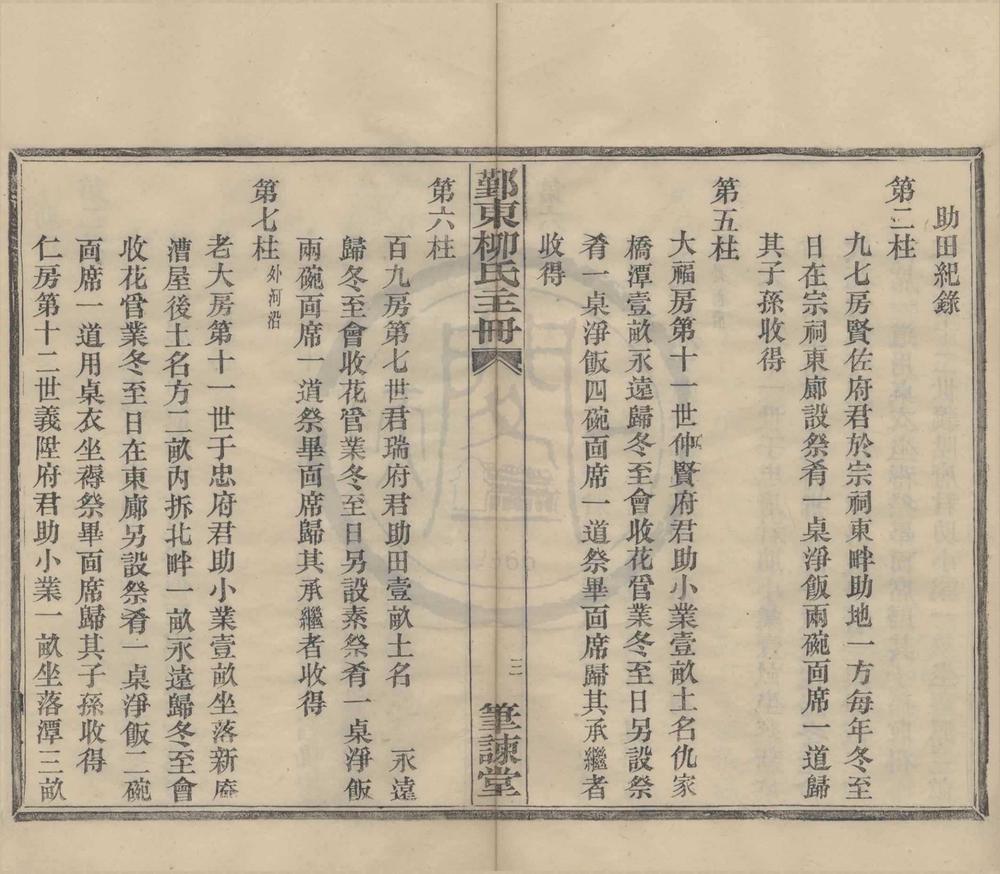 助田紀錄
第二柱
九七房賢佐府君於宗祠東畔助地一方每年冬至
日在宗祠東廊設祭肴一桌淨飯兩碗面席一道歸
其子孫收得
第五柱
大福房第十一世仲賢府君助小業壹畝土名仇家
橋潭壹畝永遠歸冬至會收花管業冬至日另設祭
肴一桌淨飯四碗面席一道祭畢面席歸其承繼者
收得
鄞東柳氏主冊
三
筆諫堂
第六柱
百九房第七世君瑞府君助田壹畝土名 永遠
歸冬至會收花管業冬至日另設素祭肴一桌淨飯
兩碗面席一道祭畢面席歸其承繼者收得
第七柱 外河沿
老大房第十一世于忠府君助小業壹畝坐落新庵
漕屋後土名方二畝內拆北畔一畝永遠歸冬至會
收花管業冬至日在東廊另設祭肴一桌淨飯二碗
面席一道用桌衣坐褥祭畢面席歸其子孫收得
仁房第十二世義陞府君助小業一畝坐落潭三畝